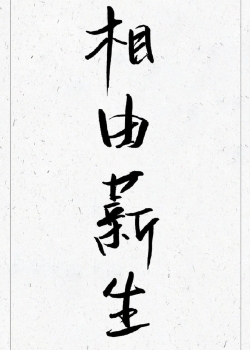 相由薪生